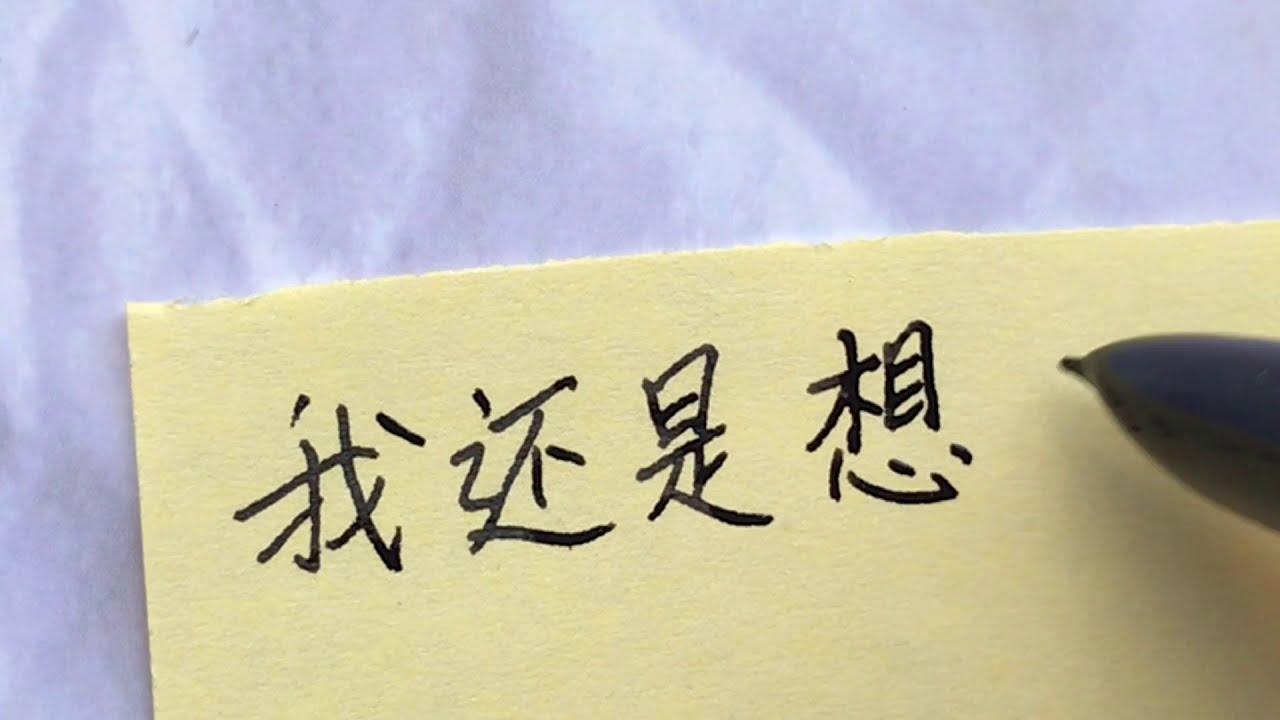 我还是想